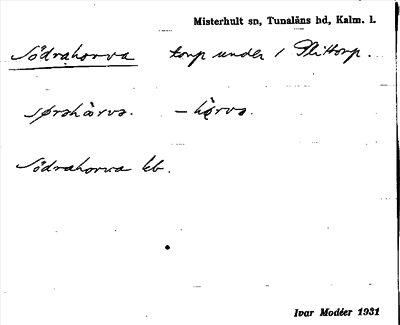 Misterhult sn, Tunaläns hd, Kalm. l.
Södrahorva torp under 1 Plittorp.
sørahàrva. – hàrva.
Södrahorva kb.
Ivar Modéer 1931